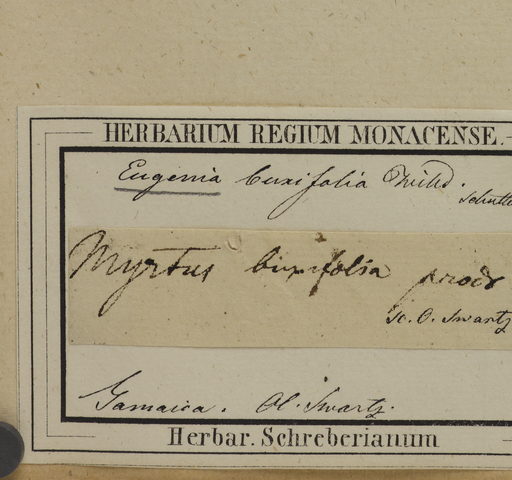 HERBARIUM REGIUM MONACENSE.
Eugenia buxifolia Willd.
Myrtus buxifolia prodr
O. Swartz
Jamaica. Ol. Swartz.
Herbar. Schreberianum